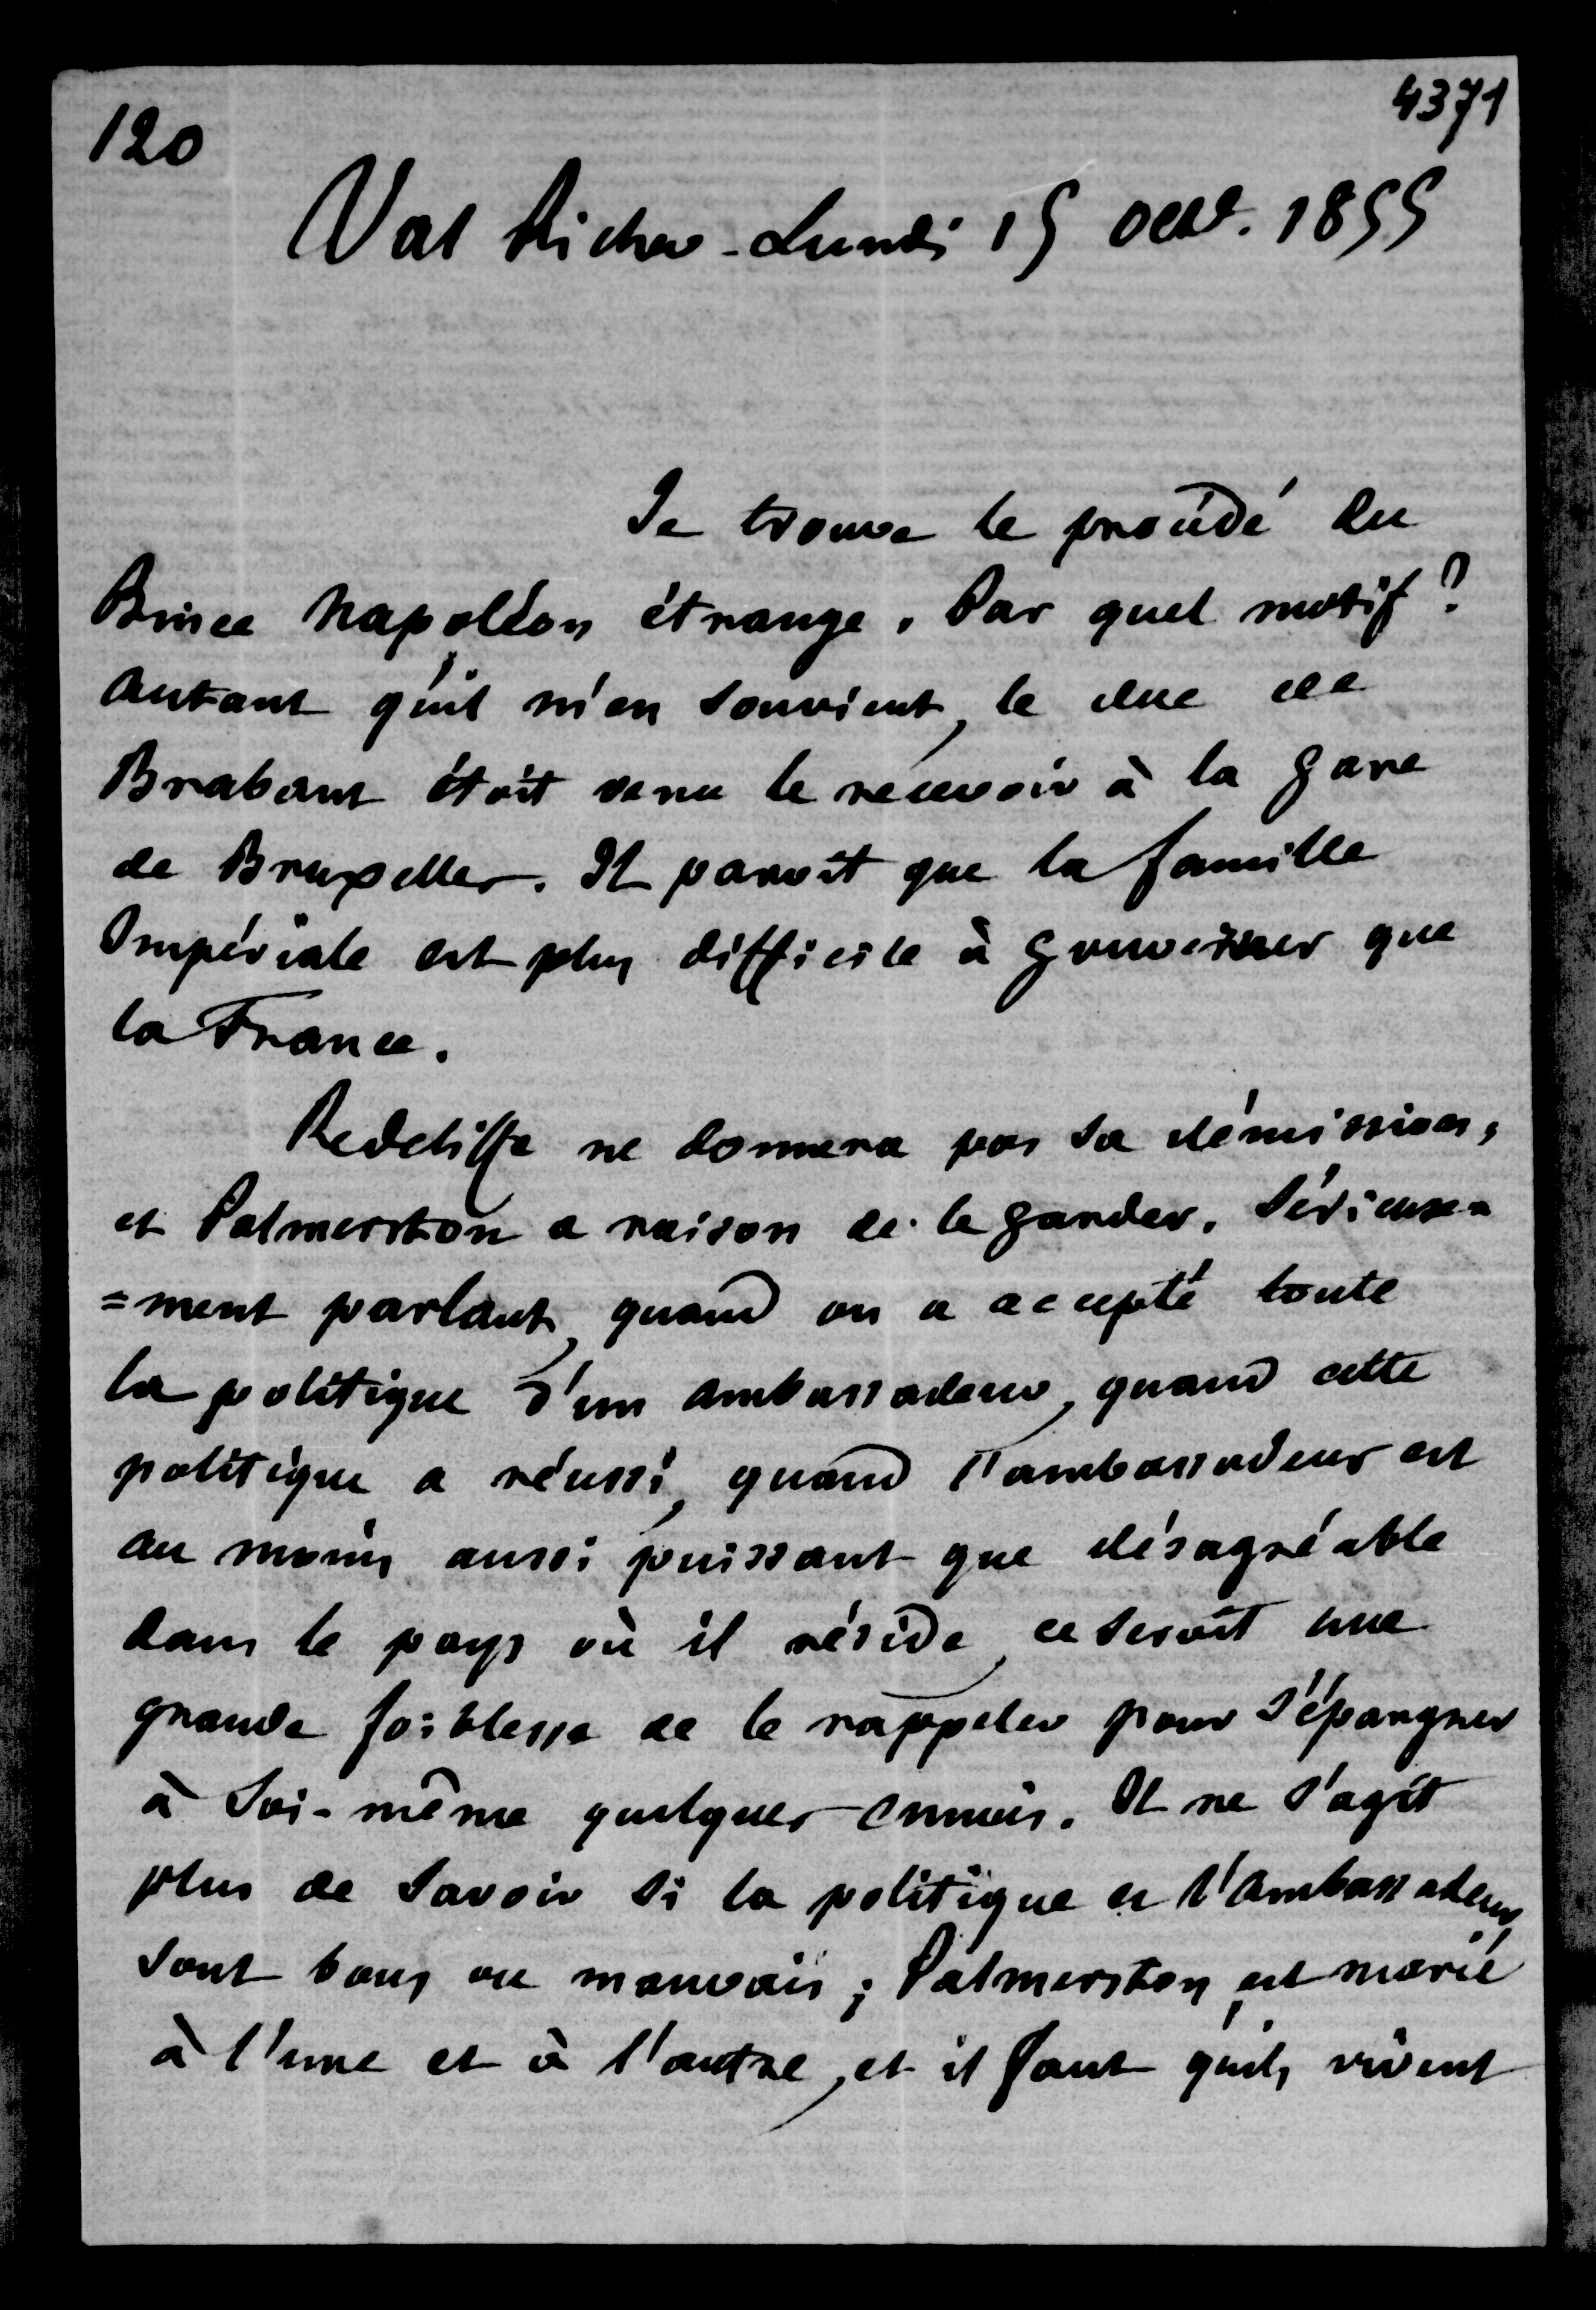 4371
120
Val Richer - Lundi 15 oct. 1855
Je trouve le procédé du
Prince Napoléon étrange. Par quel motif ?
autant qu'il m'en souvient, le duc de
Brabant étoit venu le recevoir à la gare
de Bruxelles. Il paroît que la famille
Impériale est plus difficile à gouverner que
la France.
Redcliffe ne donnera pas sa démission,
et Palmerston a raison de le garder. Sérieuse=
=ment parlant, quand on a accepté toute
la politique d'un ambassadeur, quand cette
politique a réussi, quand l'ambassadeur est
au moins aussi puissant que désagréable
dans le pays où il réside, ce seroit une
grande foiblesse de le rappeler pour s'épargner
à soi-même quelques ennuis. Il ne s'agit
plus de savoir si la politique et l'ambassadeur
sont bons ou mauvais ; Palmerston est marié
à l'une et à l'autre, et il faut qu'ils vivent